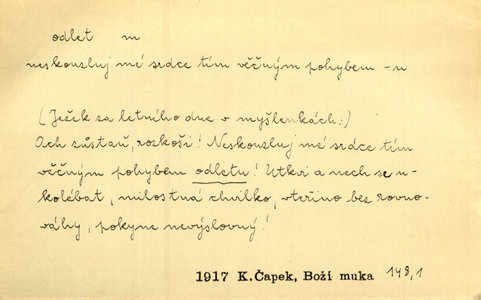 odlet m
neskouzluj mé srdce tím věčným pohybem -u
(Ježek za letního dne v myšlenkách:)
Och zůstaň, rozkoši! Neskouzluj mé srdce tím
věčným pohybem odletu! Utkvi a nech se u-
kolébat, milostná chvilko, vteřino bez rovno-
váhy, pokyne nevýslovný!
1917 K.Čapek, Boží muka 148,1